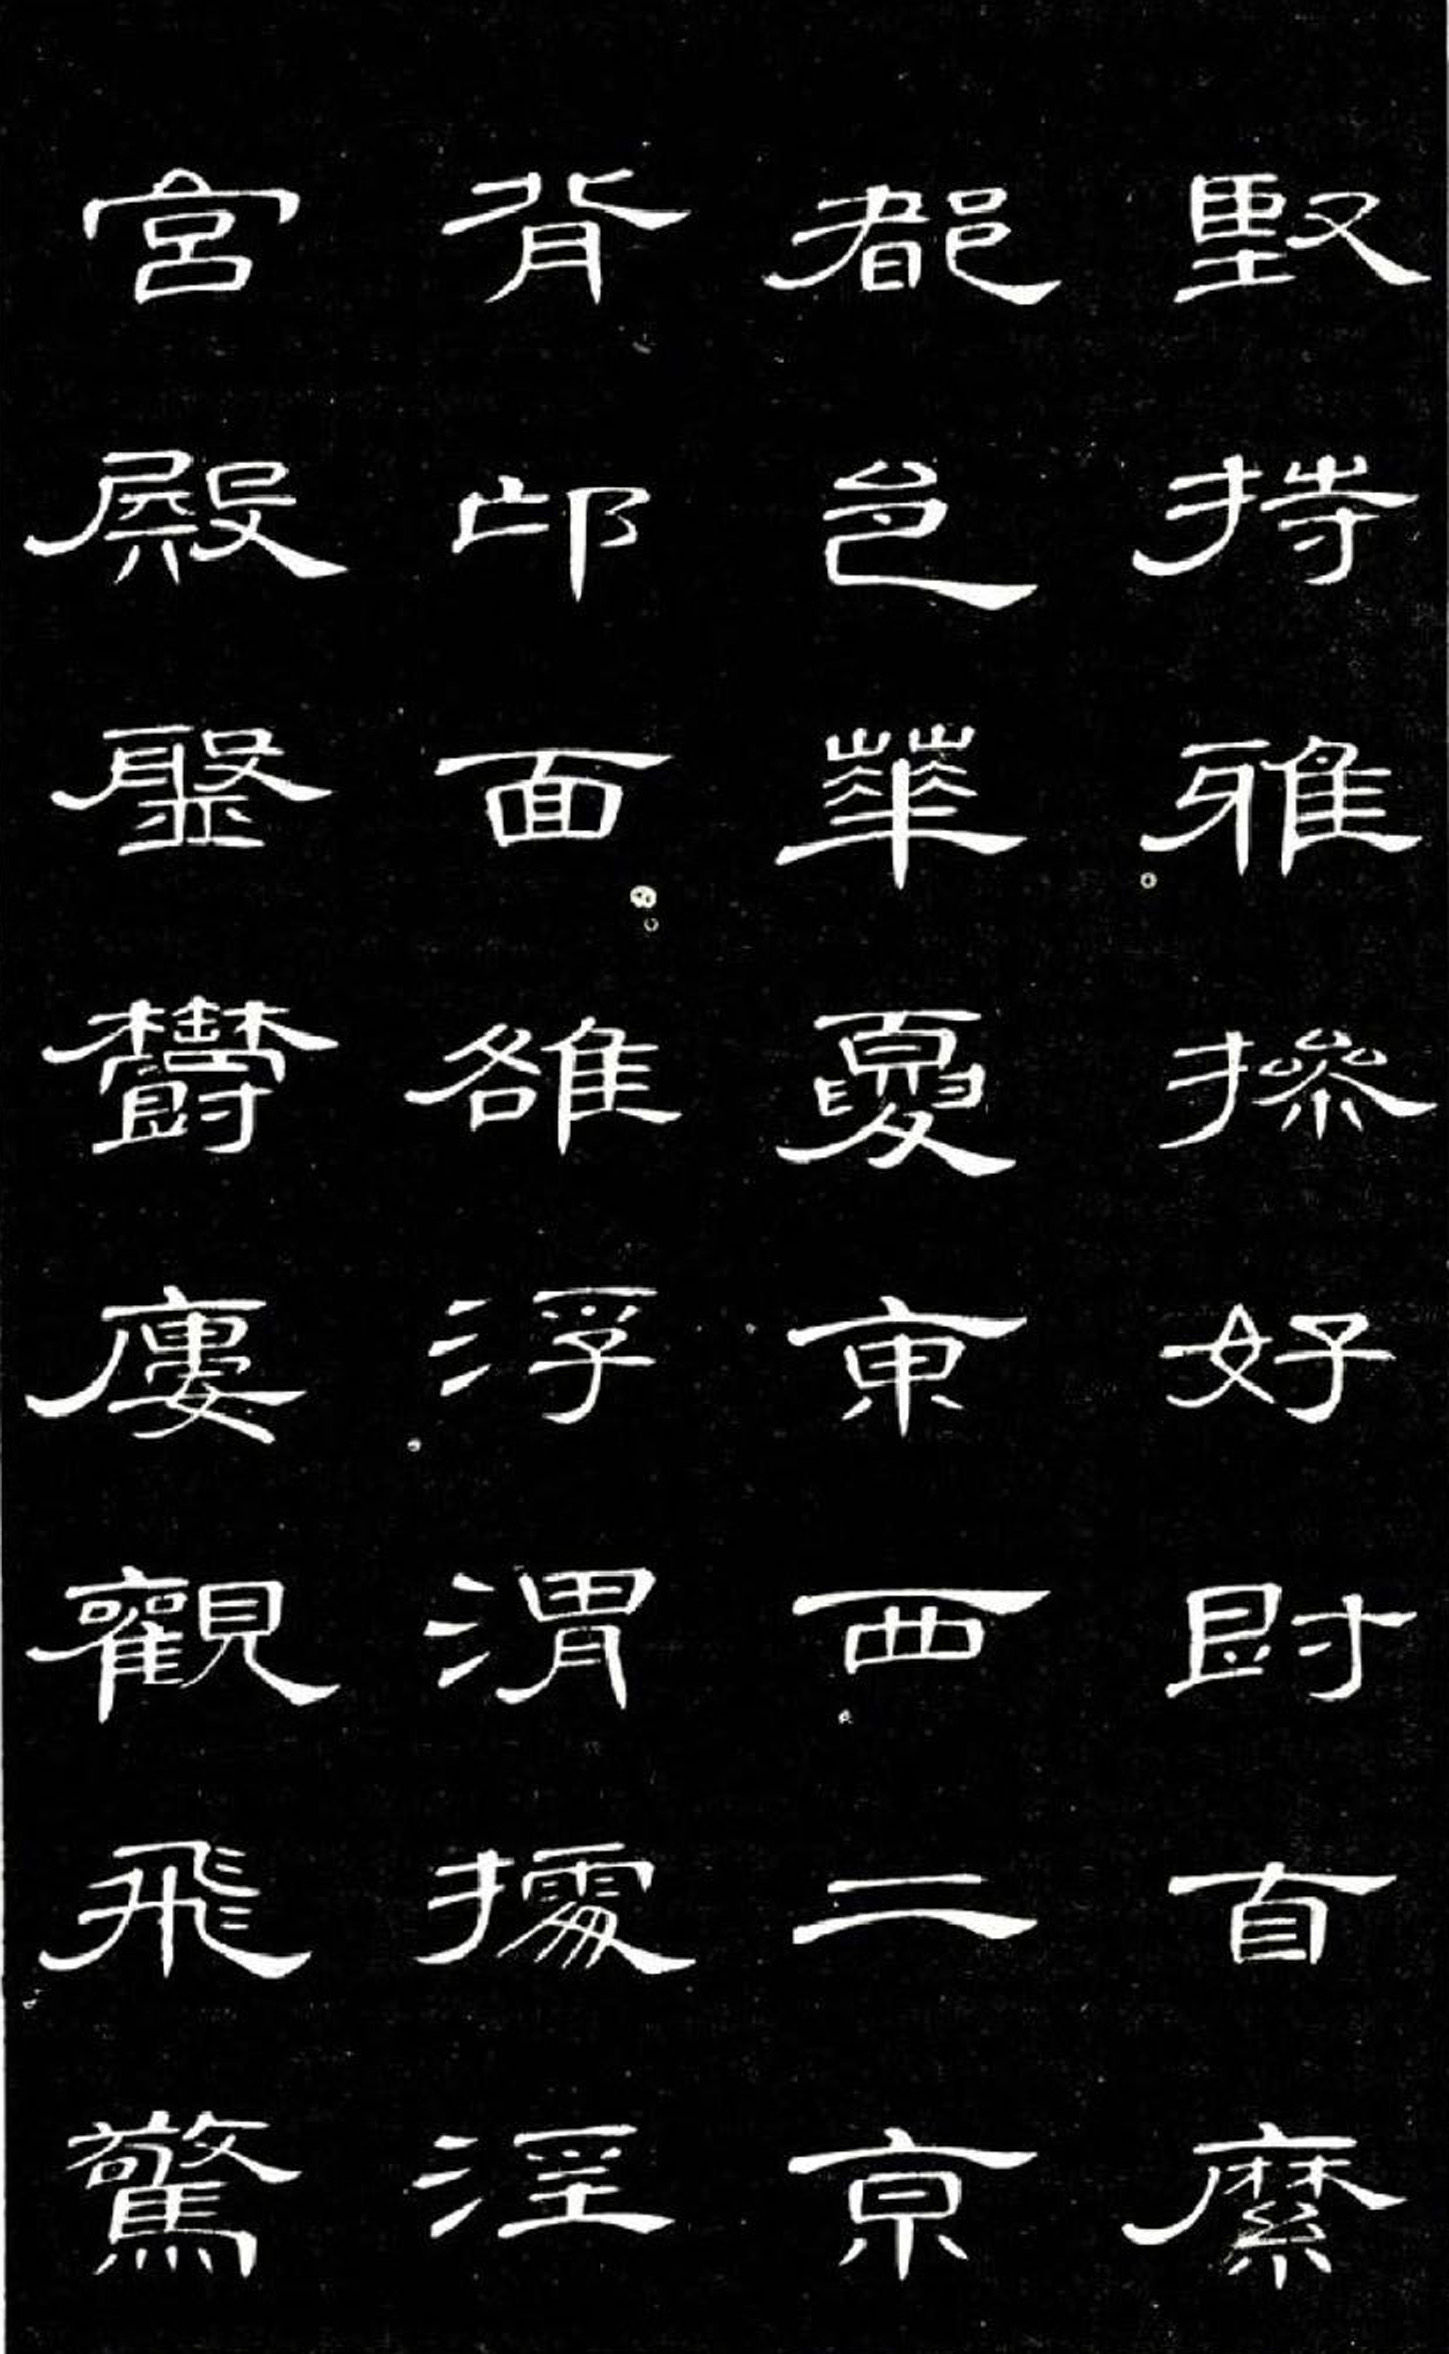 堅持雅操好爵自縻
都邑華夏東西二京
背邙面雒浮渭據涇
宮殿盤鬱樓觀飛驚